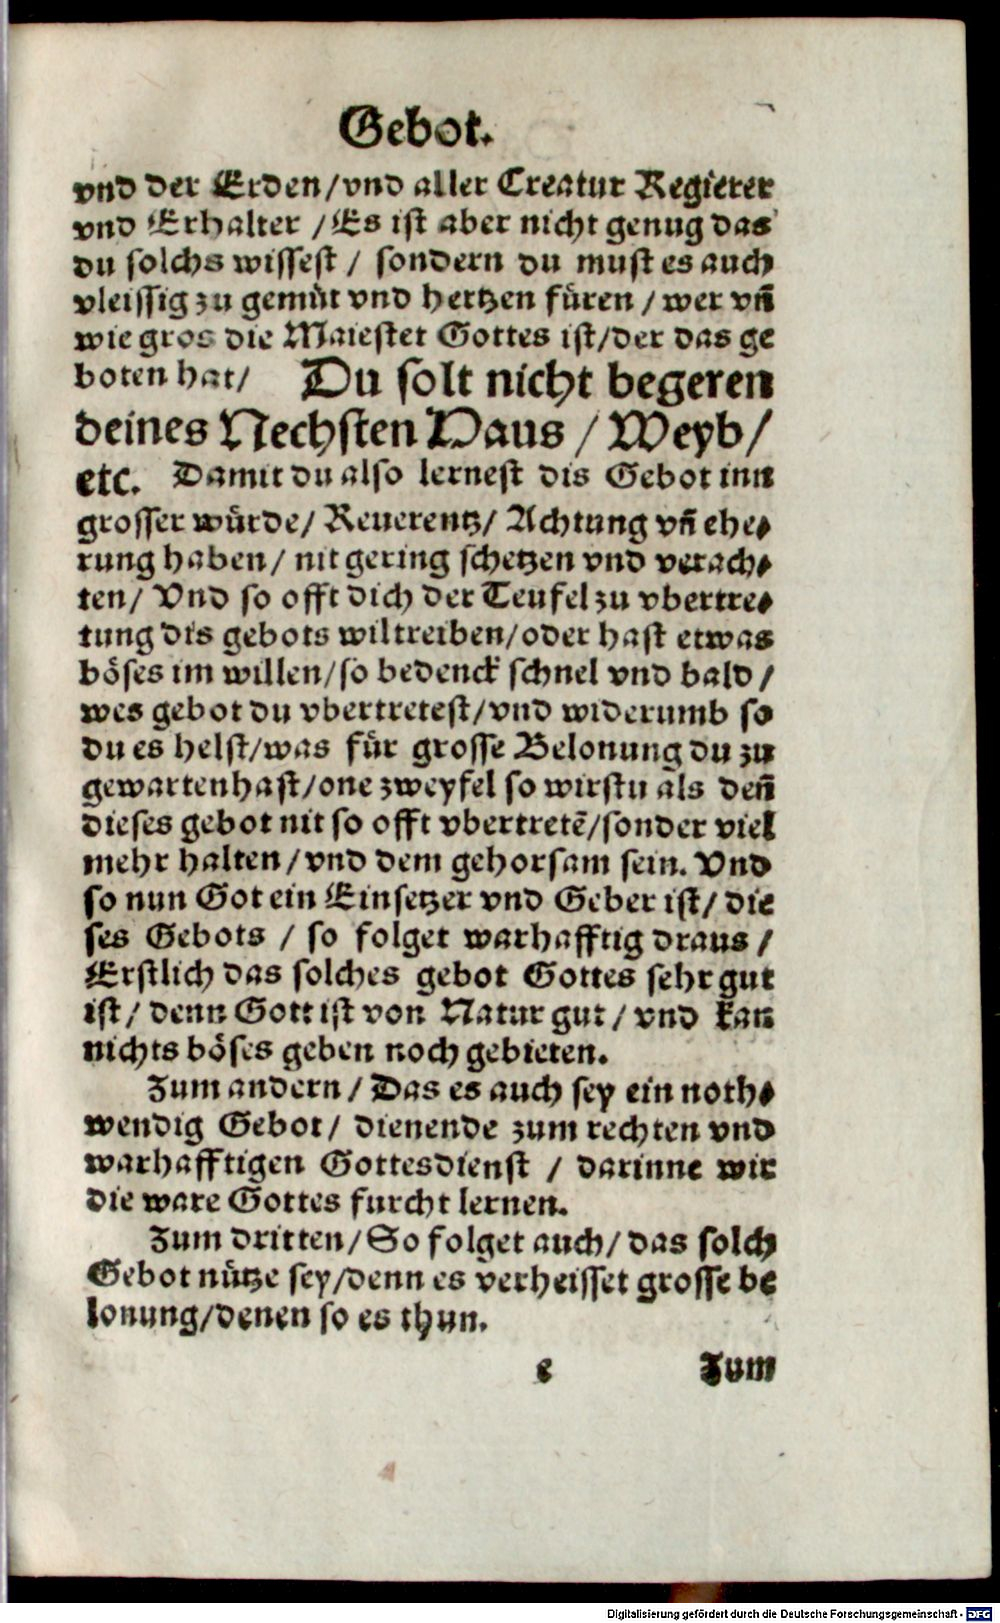 Gebot.
vnd der Erden/vnd aller Creatur Regierer
vnd Erhalter /Es ist aber nicht genug das
du solchs wissest / sondern du must es auch
vleissig zu gemüt vnd hertzen füren / wer vn̄
wie gros die Maiestet Gottes ist/der das ge
boten hat/ Du solt nicht begeren
deines Nechsten Haus / Weyb/
etc. Damit du also lernest dis Gebot inn
grosser würde/ Reuerentz/ Achtung vn̄ ehe⸗
rung haben/ nit gering schetzen vnd verach⸗
ten/ Vnd so offt dich der Teufel zu vbertre⸗
tung dis gebots wil treiben/oder hast etwas
böses im willen/so bedenck schnel vnd bald /
wes gebot du vbertretest/vnd widerumb so
du es helst/was für grosse Belonung du zu
gewarten hast/one zweyfel so wirstu als den̄
dieses gebot nit so offt vbertretē/sonder viel
mehr halten/vnd dem gehorsam sein. Vnd
so nun Got ein Einsetzer vnd Geber ist/ die
ses Gebots / so folget warhafftig draus /
Erstlich das solches gebot Gottes sehr gut
ist/ denn Gott ist von Natur gut / vnd kan
nichts böses geben noch gebieten.
Zum andern / Das es auch sey ein noth⸗
wendig Gebot/ dienende zum rechten vnd
warhafftigen Gottesdienst / darinne wir
die ware Gottes furcht lernen.
Zum dritten/So folget auch/ das solch
Gebot nütze sey/denn es verheisset grosse be
lonung/denen so es thun.
e Zum
Digitalisierung gefördert durch die Deutsche Forschungsgemeinschaft - DFG